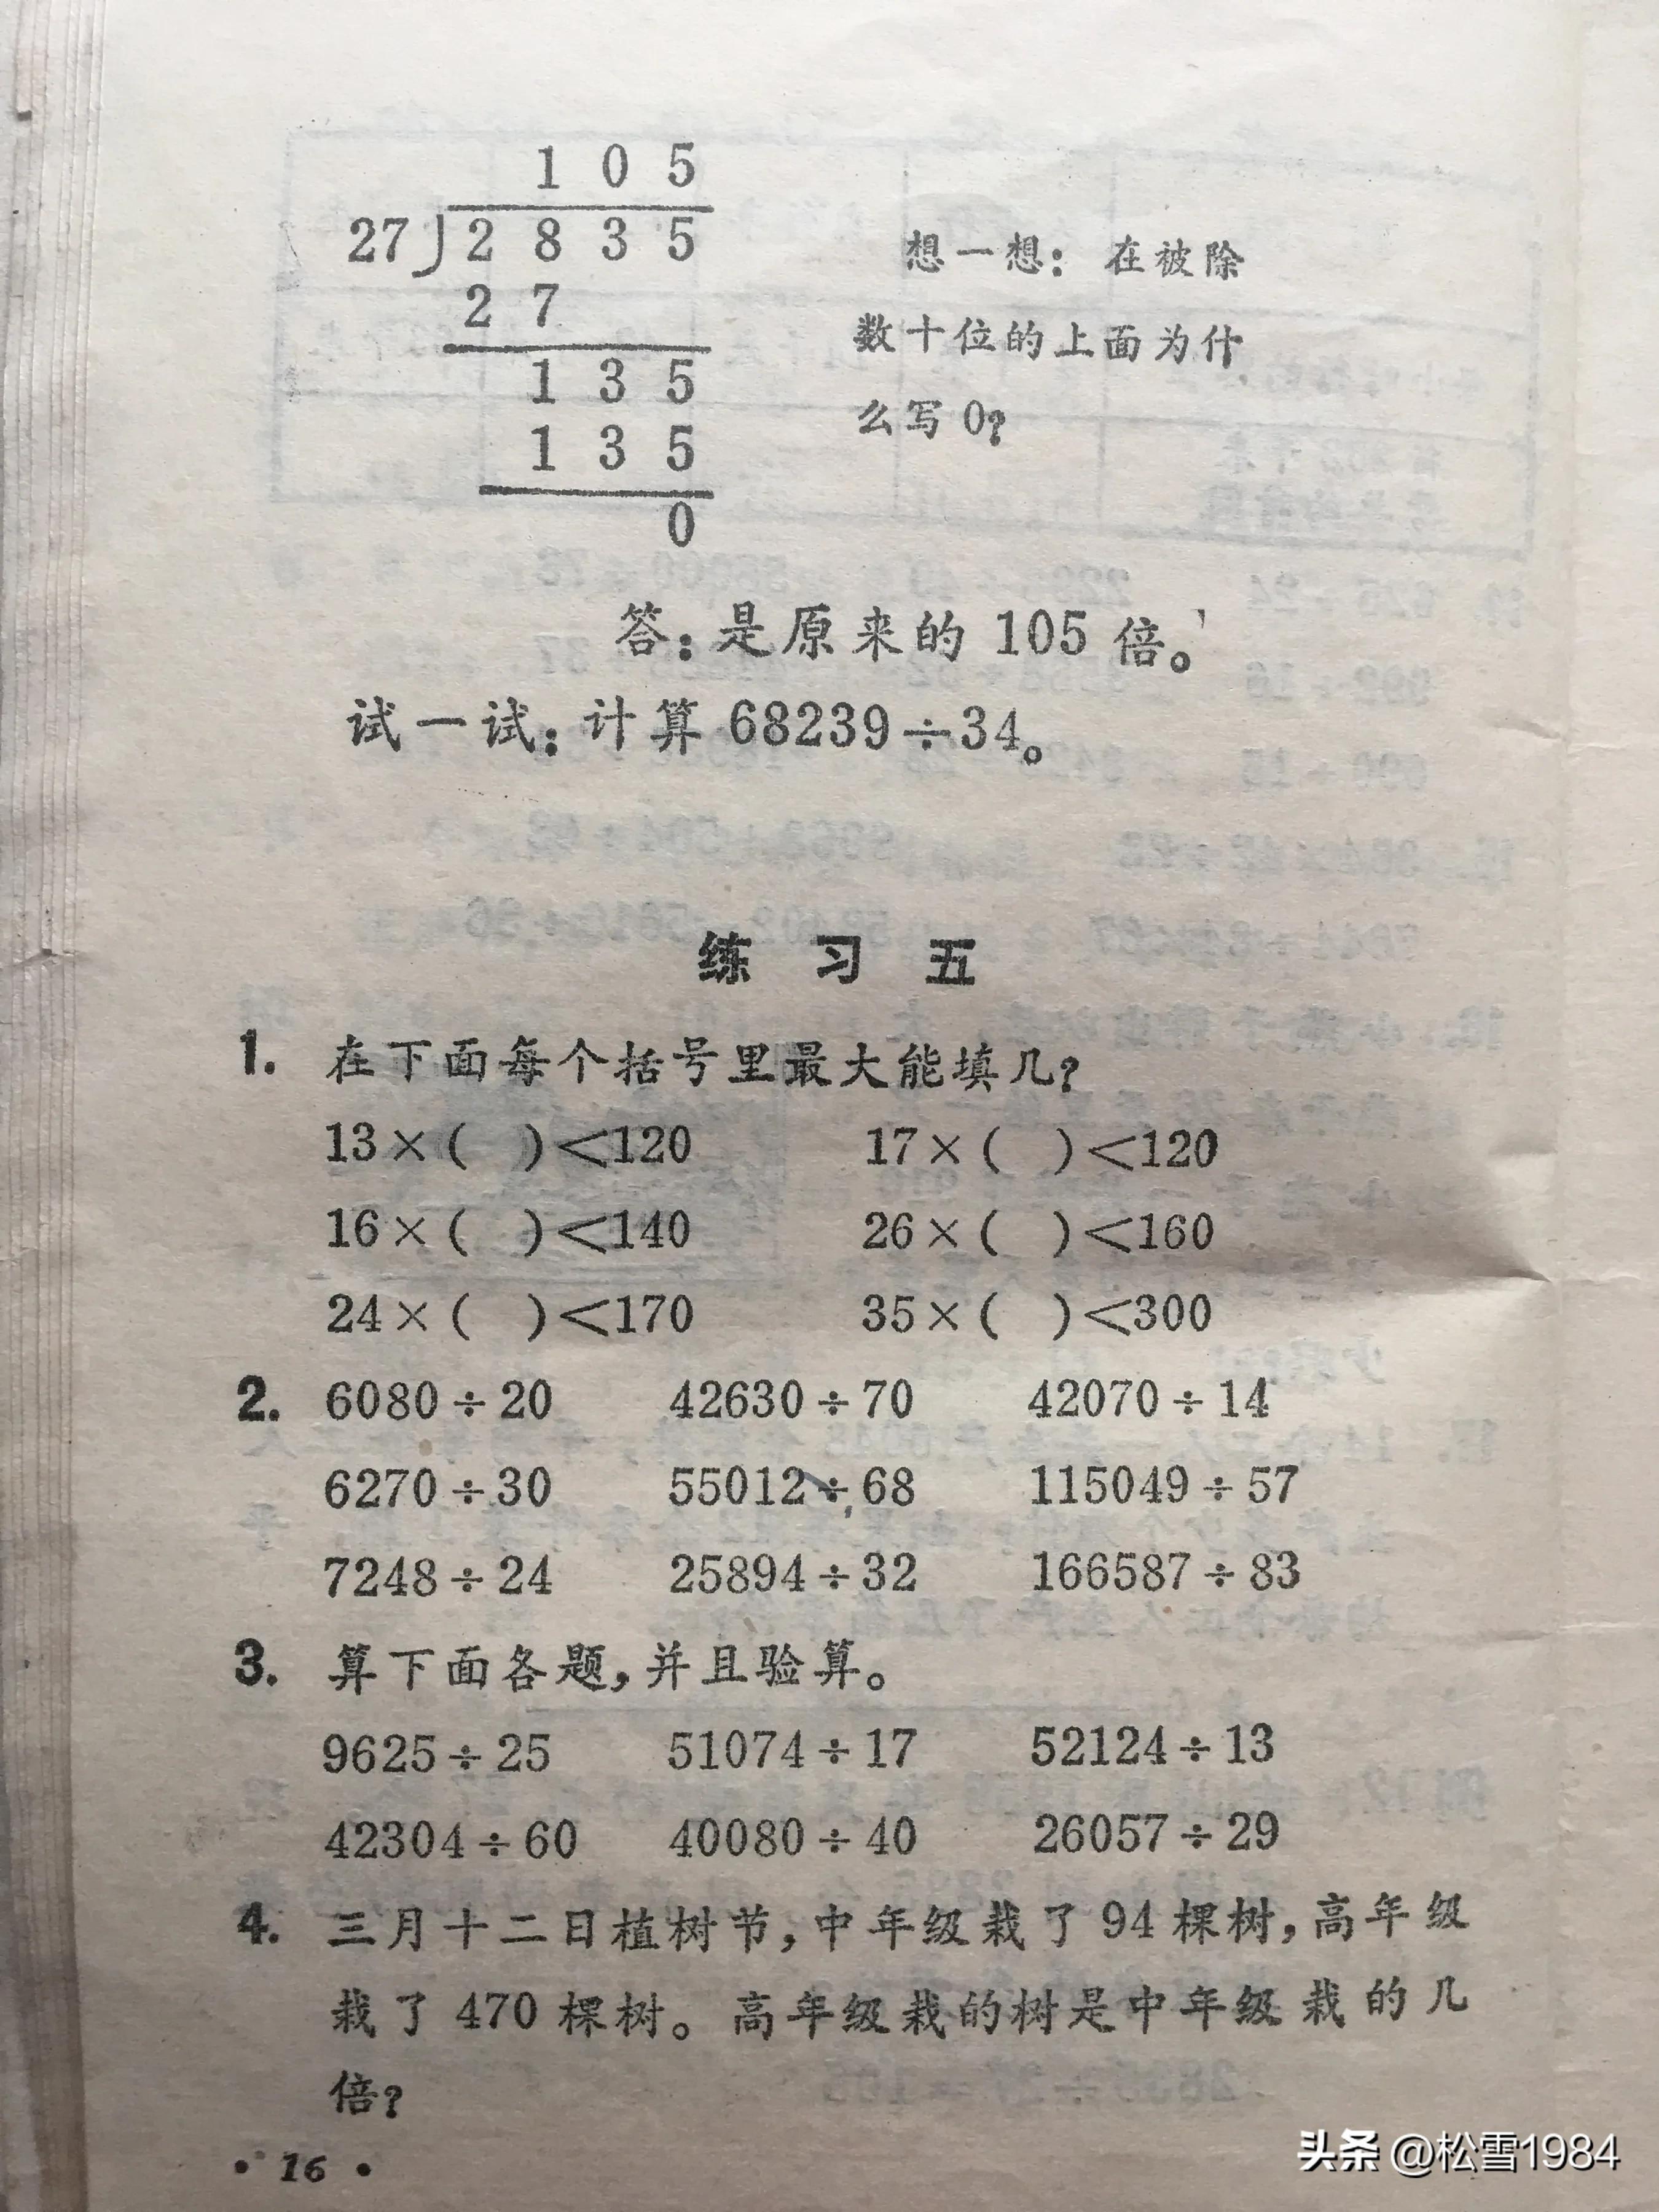 1 0 5
27)2 8 3 5
2 7
1 3 5
1 3 5
0
想一想：在被除
数十位的上面为什
么写0？
答：是原来的 105 倍。
试一试：计算 68239÷34。
练 习 五
1. 在下面每个括号里最大能填几？
13×( )＜120 17×( )＜120
16×( )＜140 26×( )＜160
24×( )＜170 35×( )＜300
2. 6080÷20 42630÷70 42070÷14
6270÷30 55012÷68 115049÷57
7248÷24 25894÷32 166587÷83
3. 算下面各题，并且验算。
9625÷25 51074÷17 52124÷13
42304÷60 40080÷40 26057÷29
4. 三月十二日植树节，中年级栽了 94 棵树，高年级
栽了 470 棵树。高年级栽的树是中年级栽的几
倍？
· 16 ·
头条 @松雪1984